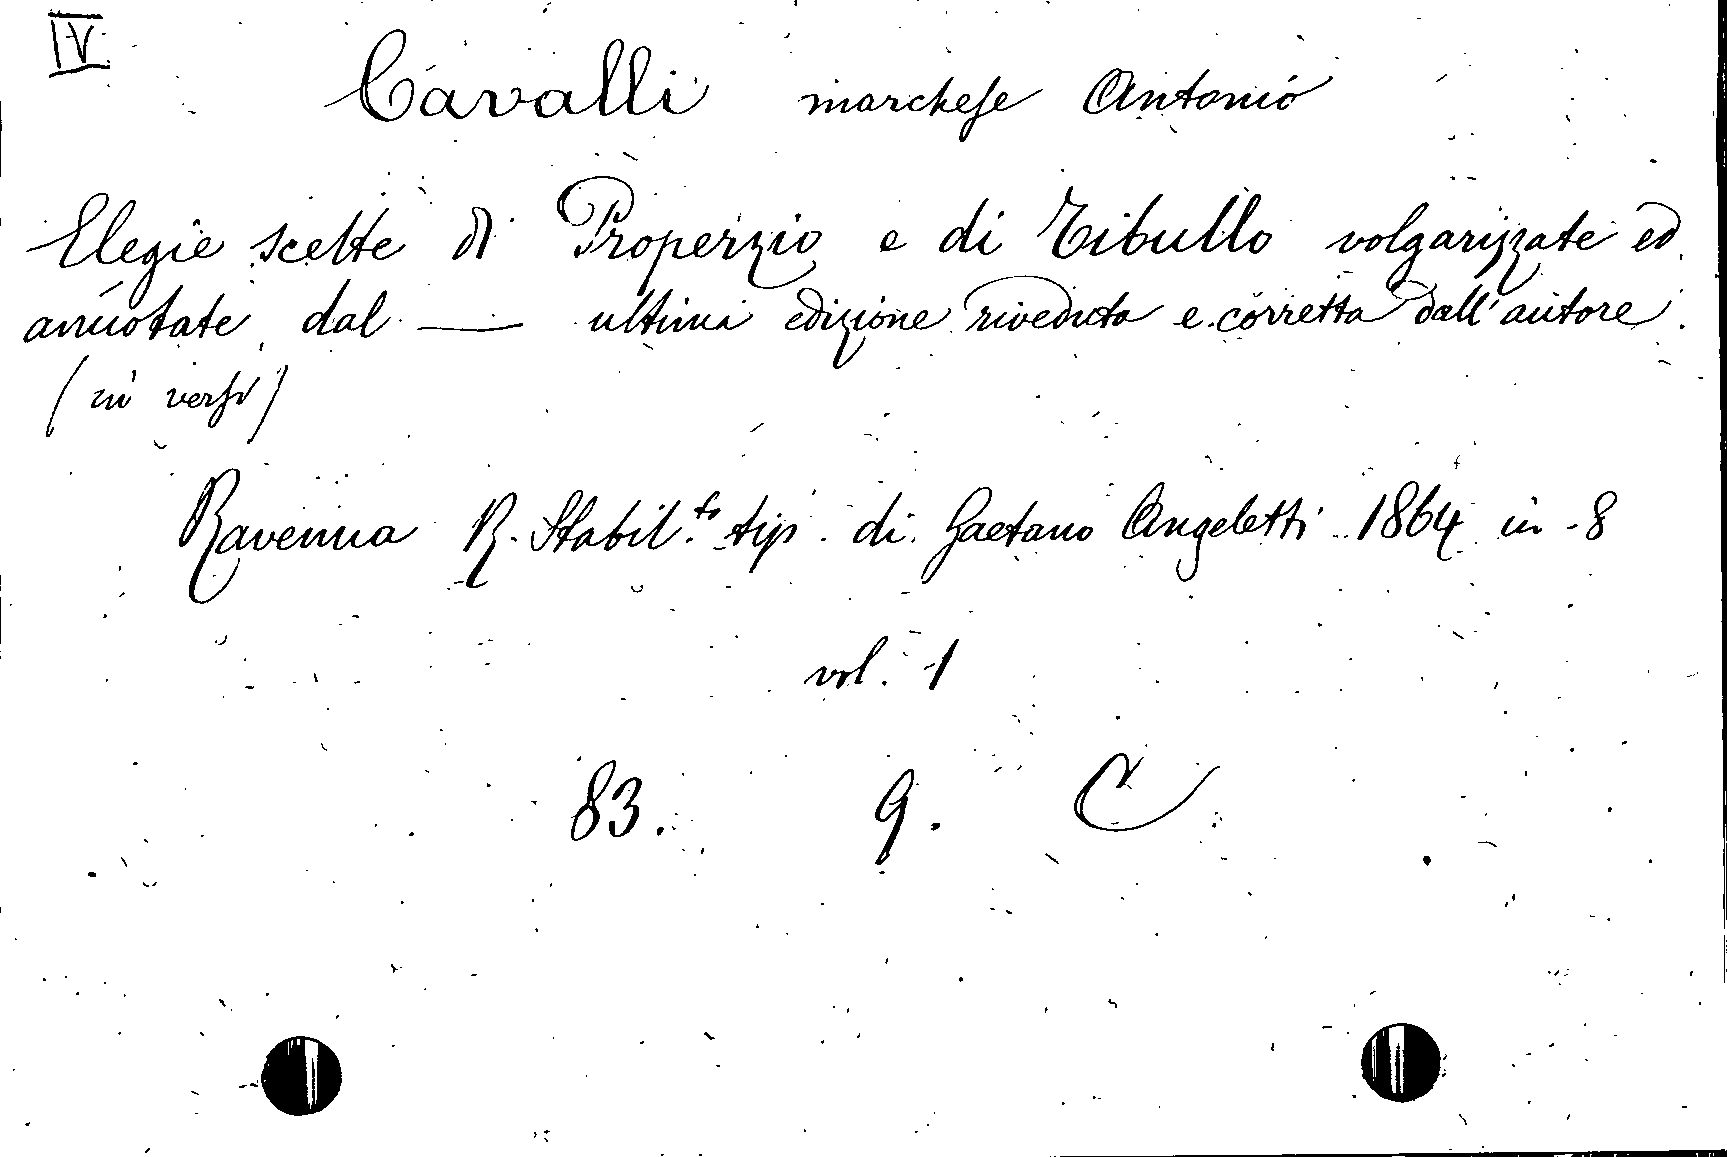 IV
Cavalli marchese Antonio
Elegie scelte di Properzio e di Tibullo volgarizzate ed
annotate dal — ultima edizione riveduta e corretta dall'autore.
(in versi)
Ravenna R. Stabil.to tip. di Gaetano Angeletti 1864 in-8
vol. 1
83. 9. C